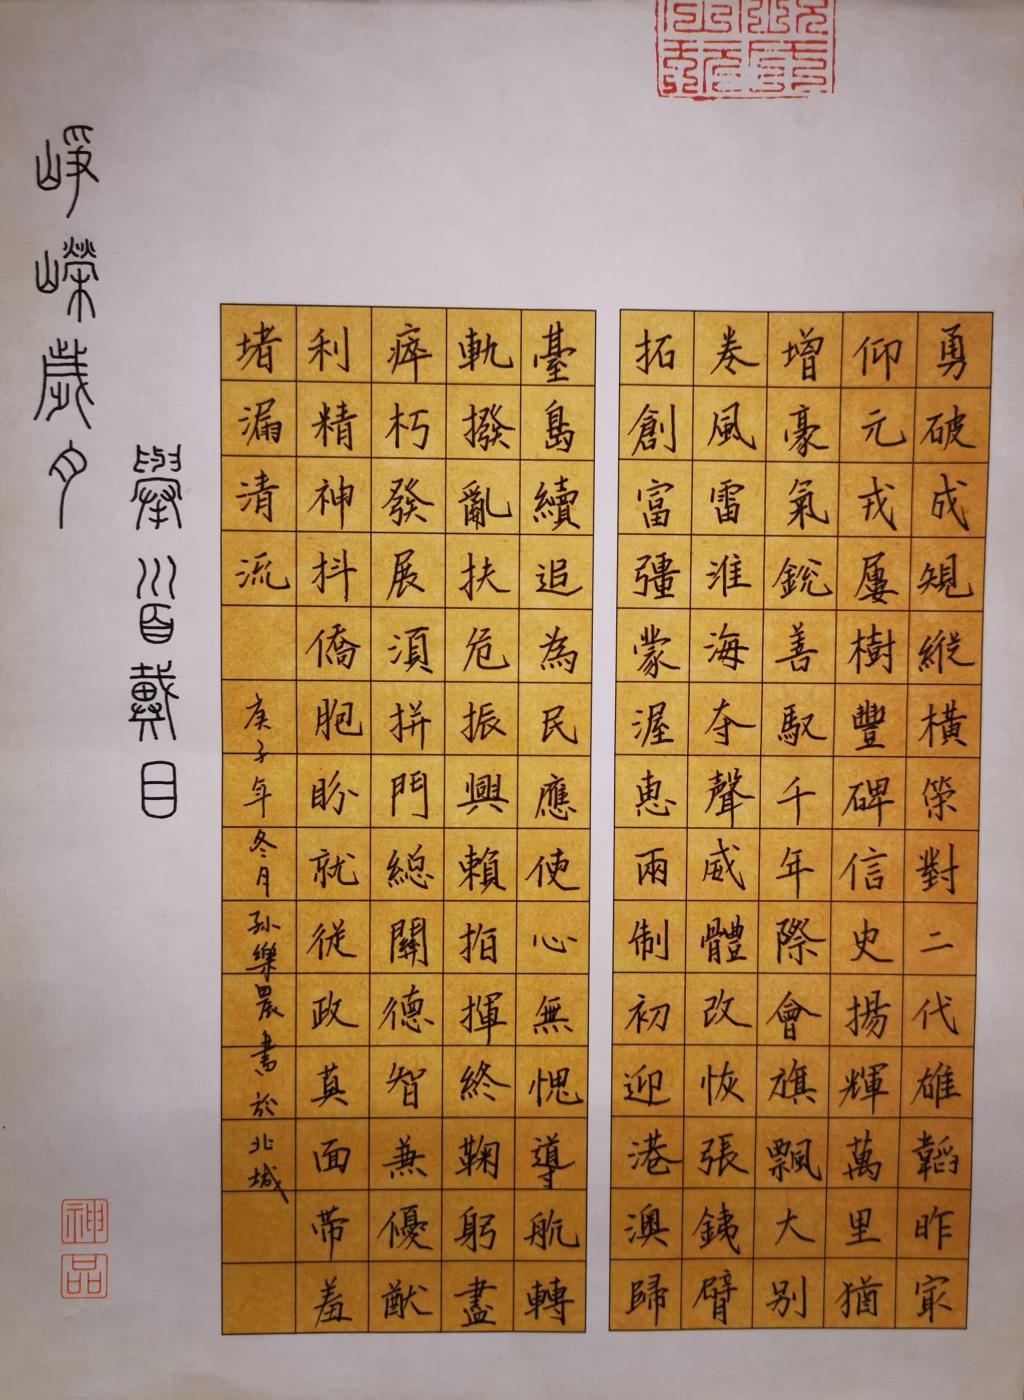 勇破成規縱橫策對二代雄韜昨宸
仰元戎屢樹豐碑信史揚輝萬里猶
增豪氣銳善馭千年際會旗飄大別
卷風雷淮海夺聲威體改恢張銕臂
拓創富彊蒙渥恵兩制初迎港澳歸
臺島續追為民應使心無愧導航轉
軌撥亂扶危振興賴指揮終鞠躬盡
瘁朽發展須拼門總關德智兼優猷
利精神抖僑胞盼就從政莫面帶羞
堵漏清流
庚子年冬月孫樂農書於北城
舉川百戴目
崢嶸歲月
神品